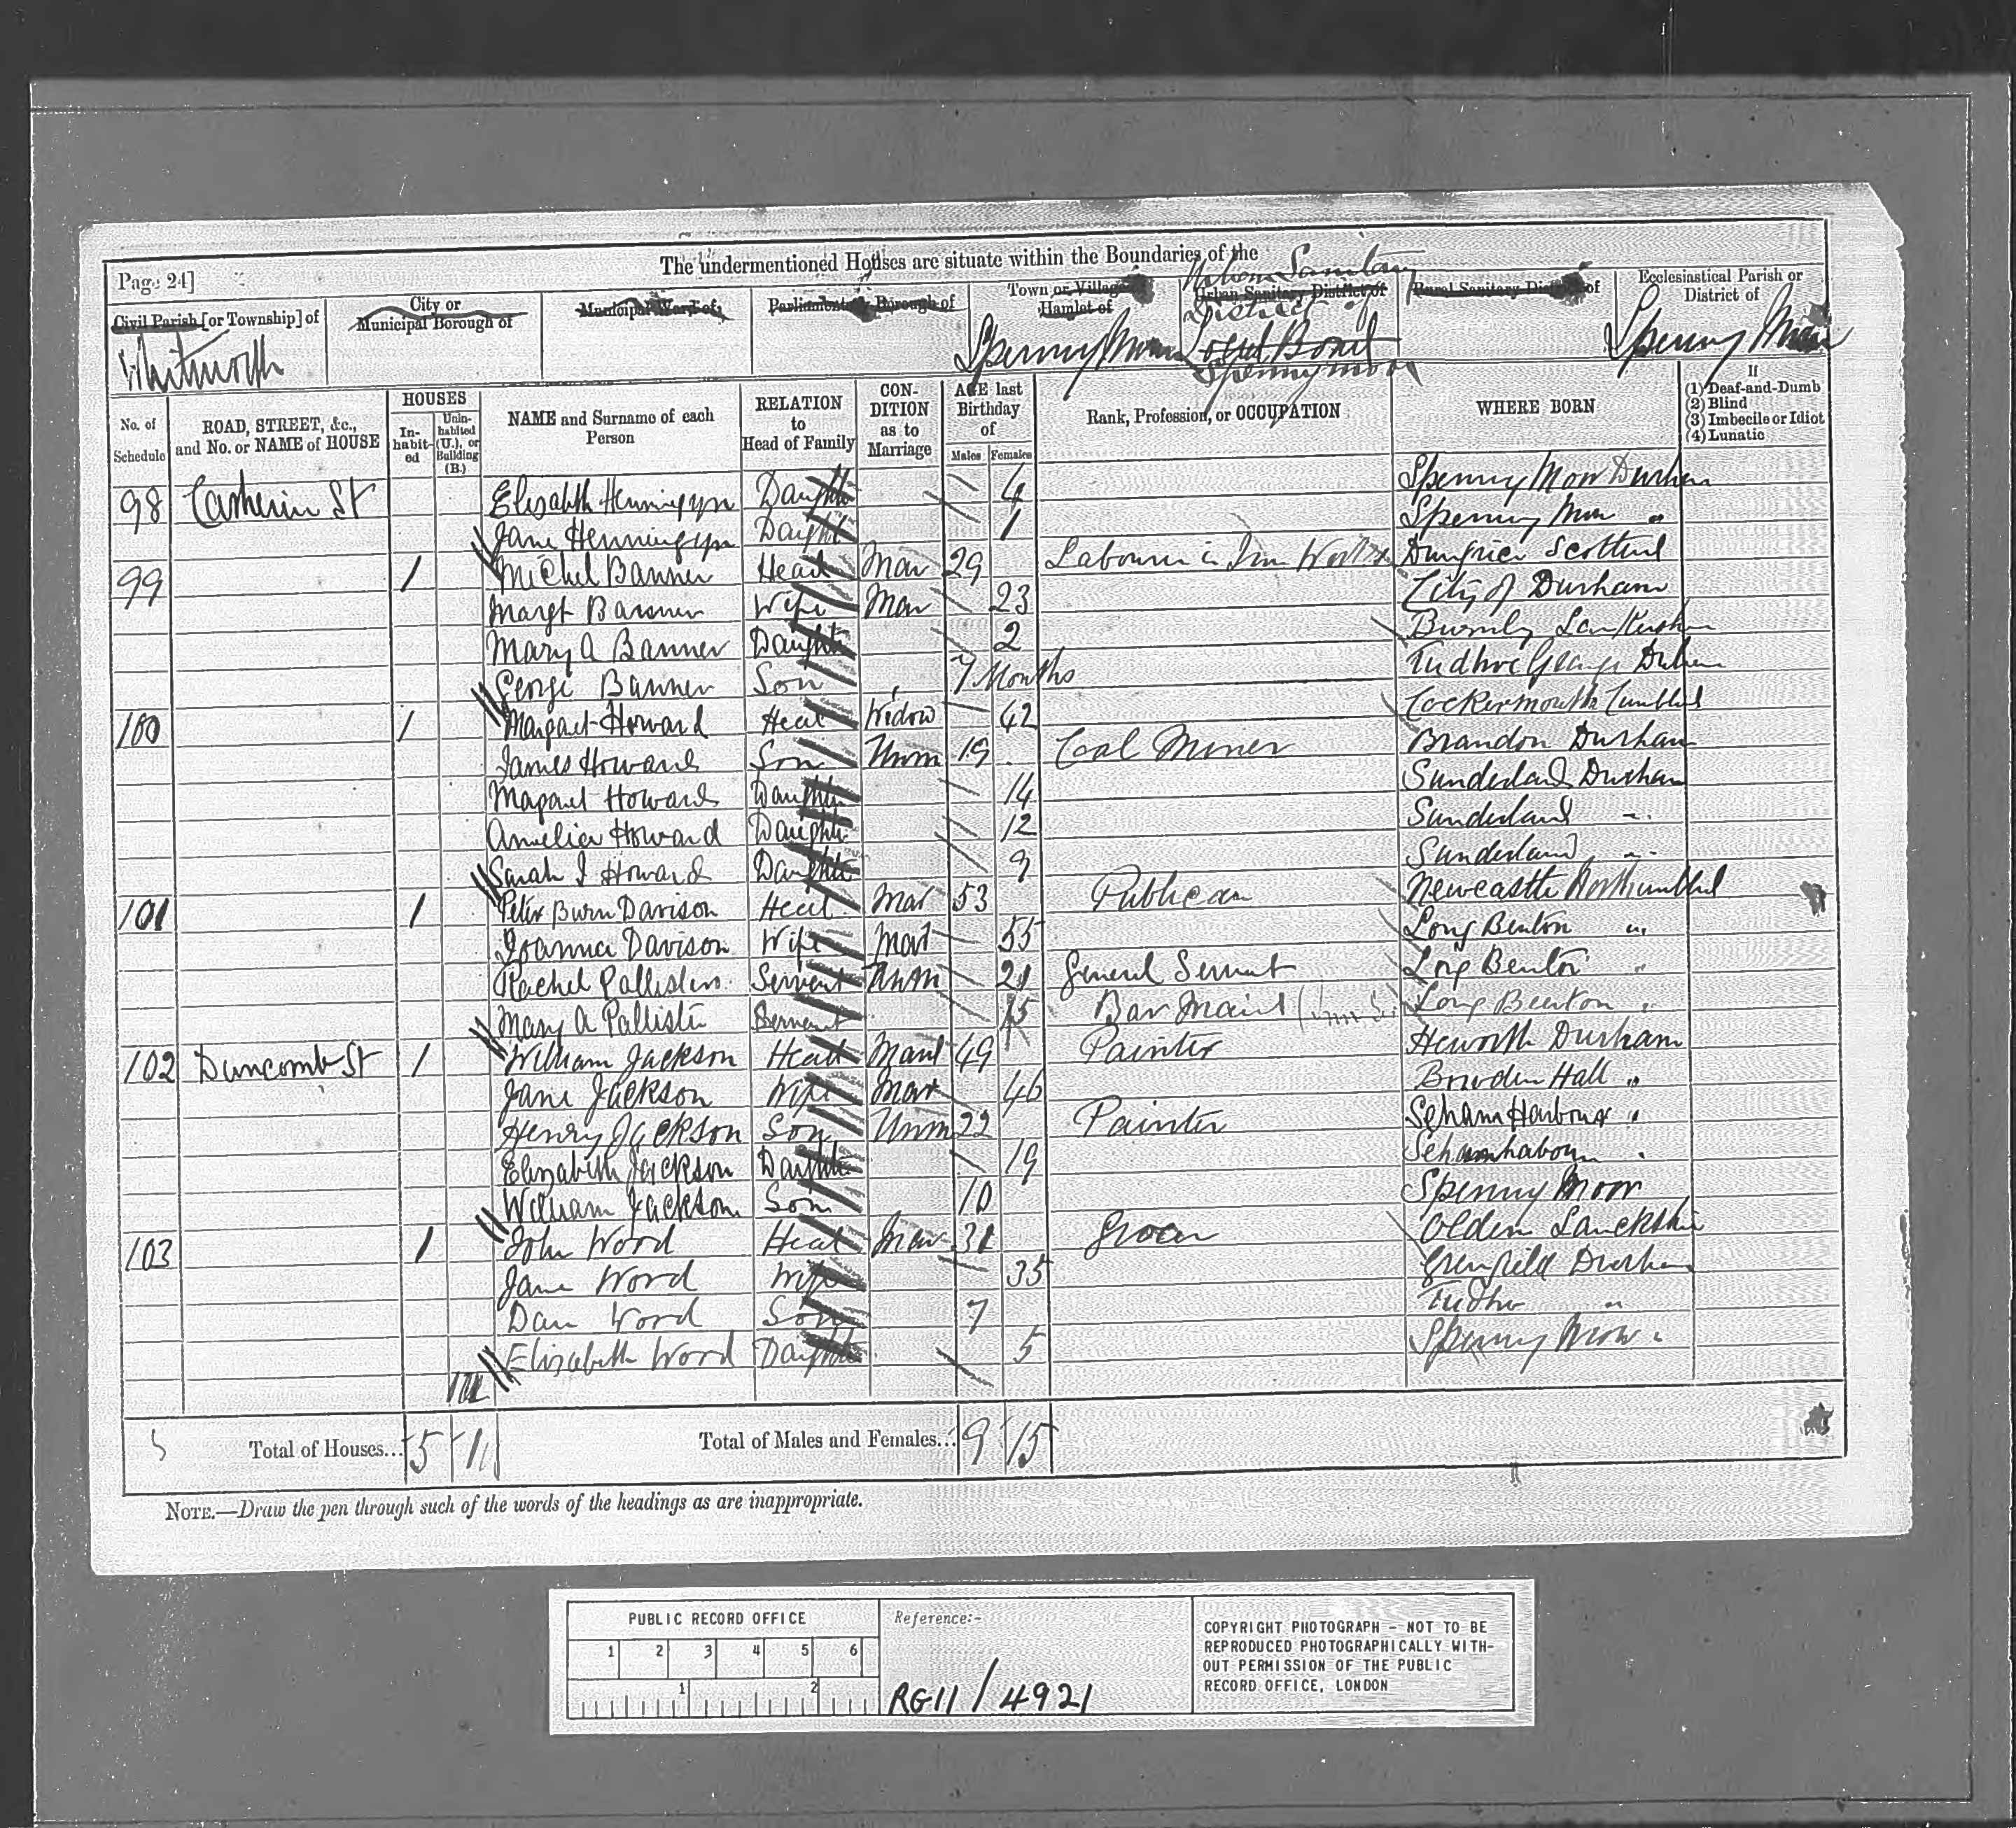 The undermentioned Houses are situate within the Boundaries of the
Page 24]
Civil Parish [or Township] of
Whitworth
City or Municipal Borough of
Municipal Ward of
Parliamentary Borough of
Town or Village or Hamlet of
Spenny Moor
Urban Sanitary District of
Urban Sanitary District of Local Board Spennymoor
Rural Sanitary District of
Ecclesiastical Parish or District of
Spenny Moor
No. of Schedule
ROAD, STREET, &c., and No. or NAME of HOUSE
HOUSES
Inhabited
Uninhabited (U.), or Building (B.)
NAME and Surname of each Person
RELATION to Head of Family
CONDITION as to Marriage
AGE last Birthday of
Males Females
Rank, Profession, or OCCUPATION
WHERE BORN
If
(1) Deaf-and-Dumb
(2) Blind
(3) Imbecile or Idiot
(4) Lunatic
98 Catherin St Elizabeth Daughter 4 Spenny Moor Durham
Jane Daughter 1 Spenny Moor "
99 1 Michel Banner Head Mar 29 Labourer in Iron Works Dumfries Scotland
Margt Banner Wife Mar 23 City of Durham
Mary A Banner Daughter 2
George Banner Son 7 Months Tudhoe Durham
100 1 Margaret Howard Head Widow 42 Cockermouth Cumbld
James Howard Son Unm 19 Coal Miner Brandon Durham
Magaret Howard Daughter 14 Sunderland Durham
Amelia Howard Daughter 12 Sunderland "
Sarah J Howard Daughter 9 Sunderland "
101 1 Peter Burn Davison Head Mar 53 Publican Newcastle Northumbld
Joanna Davison Wife Mar 55 Long Benton "
Rachel Pallister Servant Unm 21 General Servant Long Benton "
Mary A Pallister Servant 15 Bar Maid Long Benton "
102 Duncomb St 1 William Jackson Head Mar 49 Painter Heworth Durham
Jane Jackson Wife Mar 46 Hall "
Henry Jackson Son Unm 22 Painter Seham Harbour "
Elizabeth Jackson Daughter 19 Sehamhabour "
William Jackson Son 10 Spenny Moor
103 1 John Word Head Mar 31 Grocer
Jane Word Wife 35 Durham
Dan Word Son 7 Tudhoe "
Elizabeth Word Daughter 5 Spenny Moor "
Total of Houses... 5
Total of Males and Females... 9 15
NOTE.—Draw the pen through such of the words of the headings as are inappropriate.
PUBLIC RECORD OFFICE
1 2 3 4 5 6
1 2
Reference:-
RG11/4921
COPYRIGHT PHOTOGRAPH - NOT TO BE
REPRODUCED PHOTOGRAPHICALLY WITH-
OUT PERMISSION OF THE PUBLIC
RECORD OFFICE, LONDON